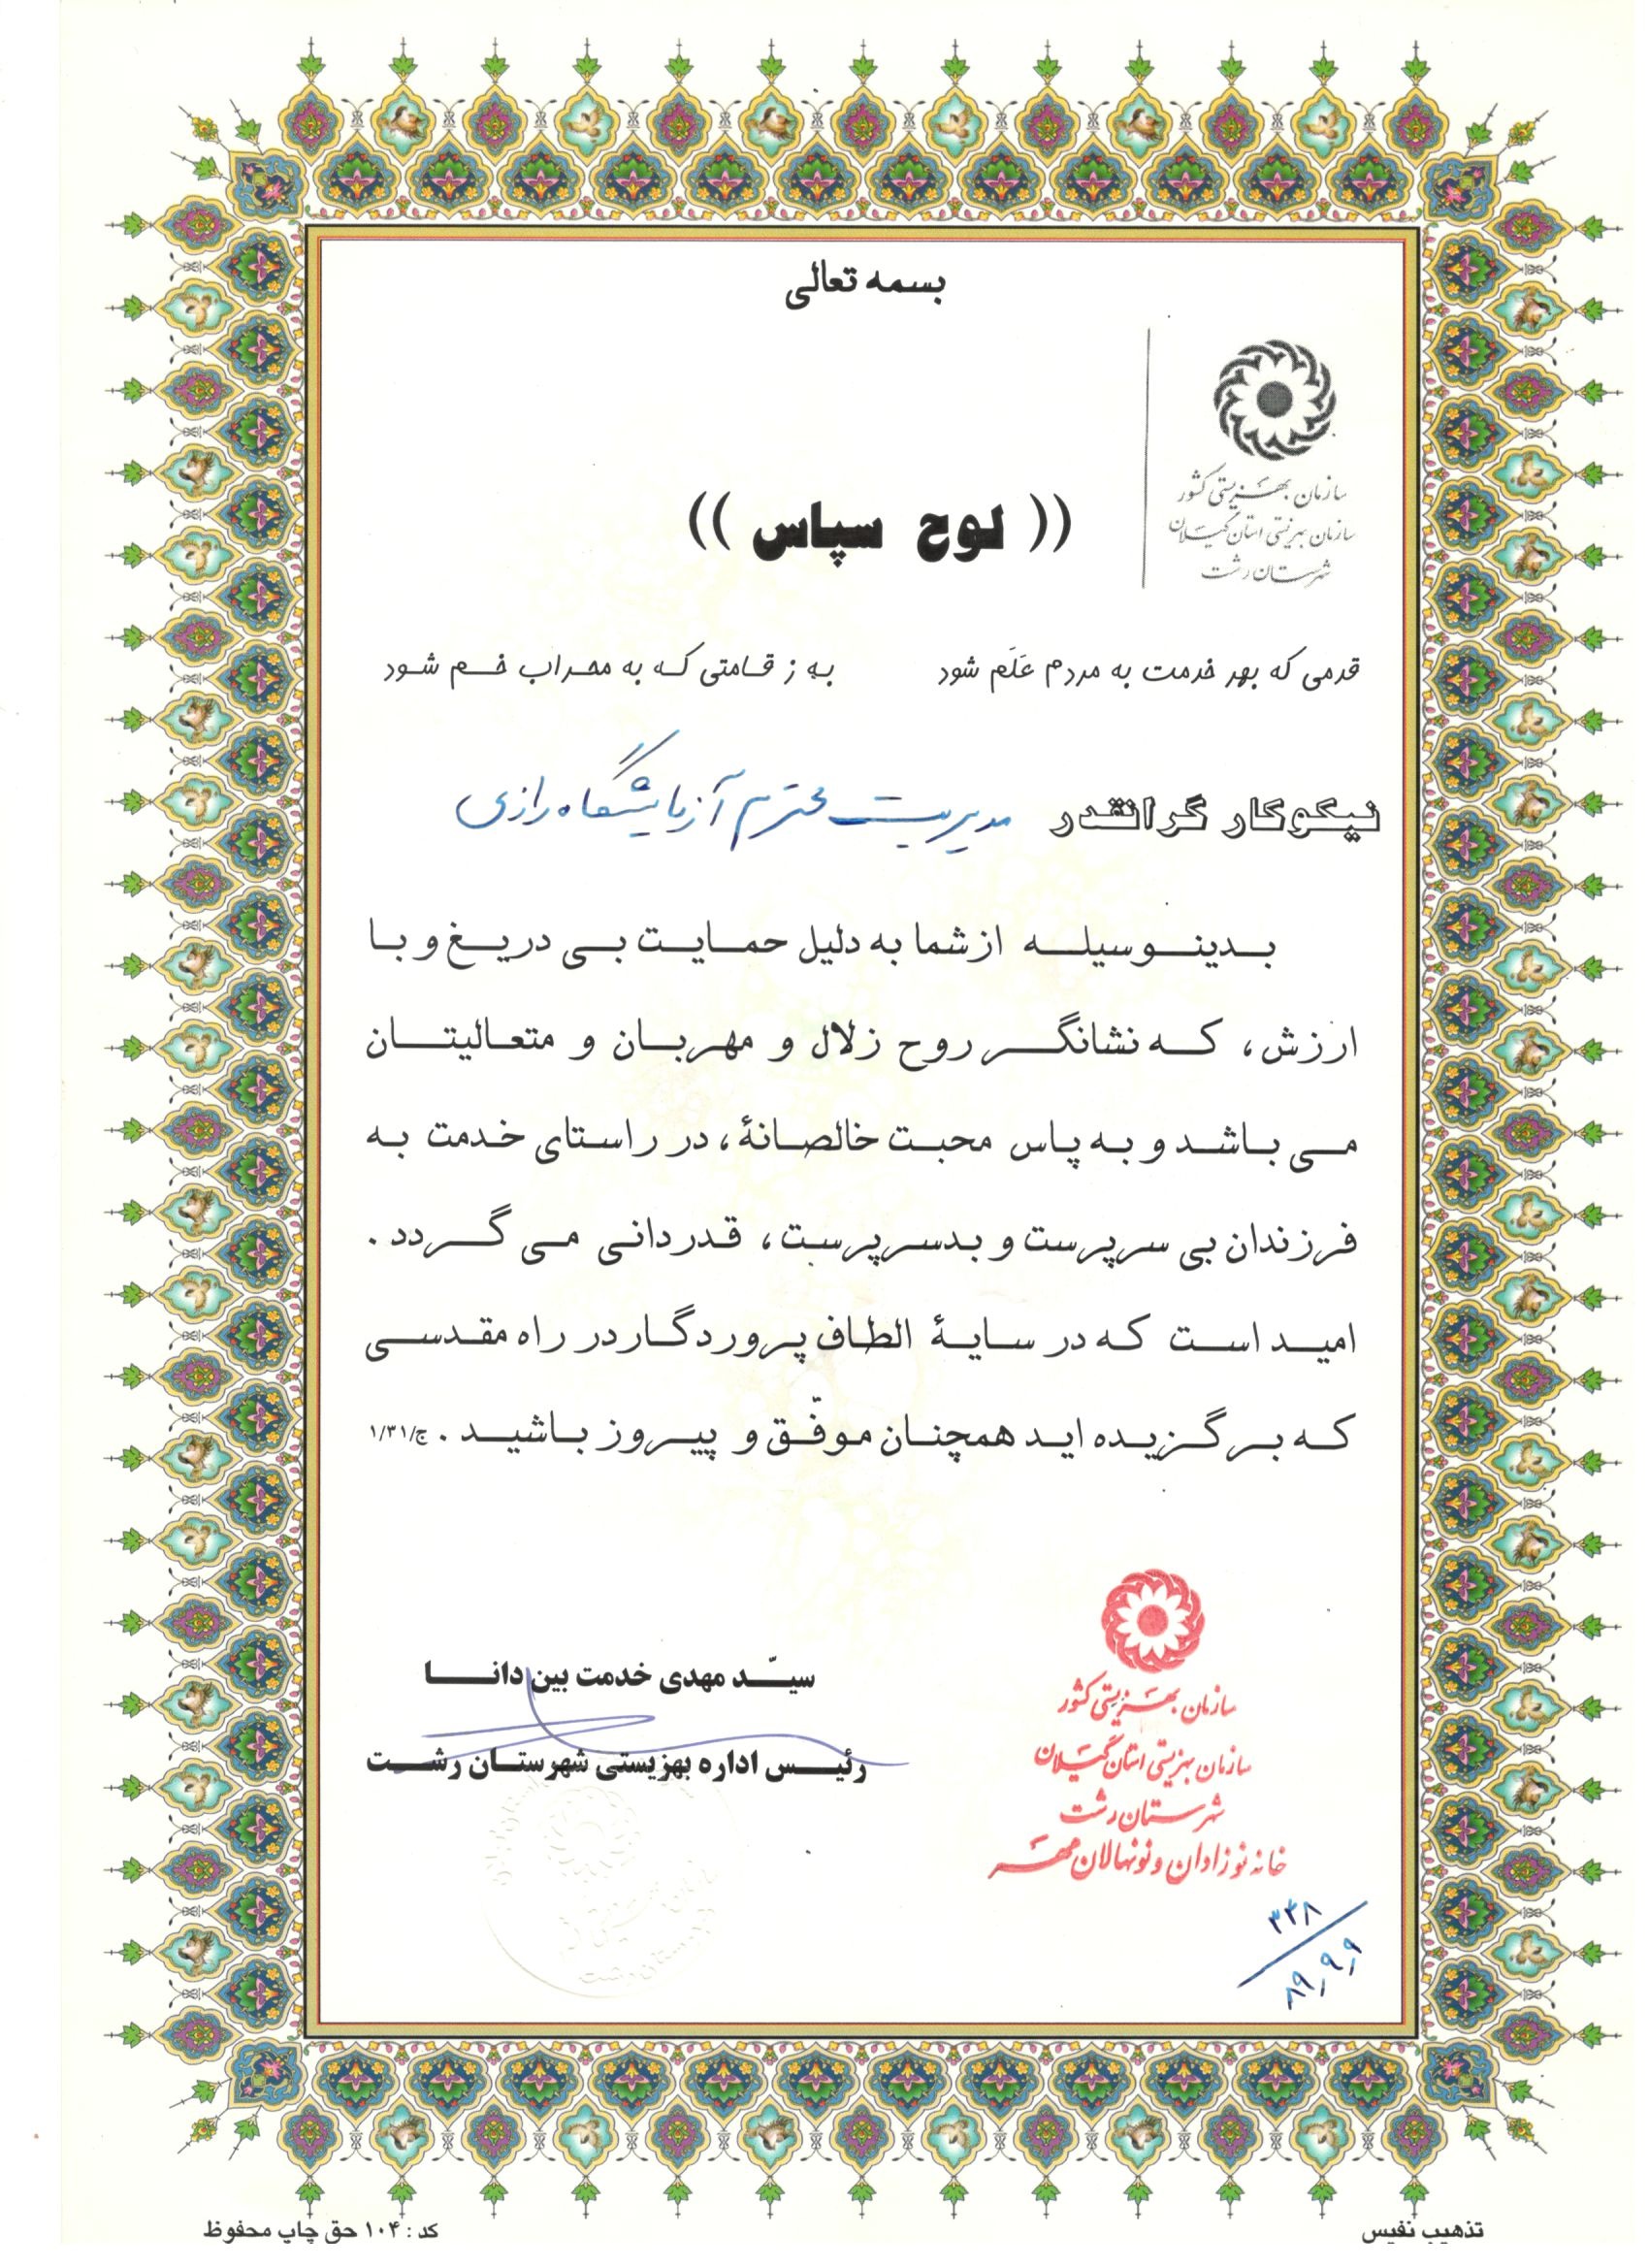 بسمه تعالی
سازمان بهزیستی کشور
سازمان بهزیستی استان گیلان
شهرستان رشت
(( لوح سپاس ))
قدمی که بهر خدمت به مردم عَلَم شود به ز قامتی که به محراب خم شود
نیکوکار گرانقدر مدیریت محترم آزمایشگاه رازی
بدینوسیله از شما به دلیل حمایت بی دریغ و با
ارزش، که نشانگر روح زلال و مهربان و متعالیتان
می باشد و به پاس محبت خالصانهٔ، در راستای خدمت به
فرزندان بی سرپرست و بدسرپرست، قدردانی می گردد .
امید است که در سایهٔ الطاف پروردگار در راه مقدسی
که برگزیده اید همچنان موفّق و پیروز باشید . ج/۱/۳۱
سیّد مهدی خدمت بین دانا
رئیس اداره بهزیستی شهرستان رشت
سازمان بهزیستی کشور
سازمان بهزیستی استان گیلان
شهرستان رشت
خانه نوزادان و نونهالان مهر
۳۳۸
۸۹,۹,۹
تذهیب نفیس
کد : ۱۰۴ حق چاپ محفوظ